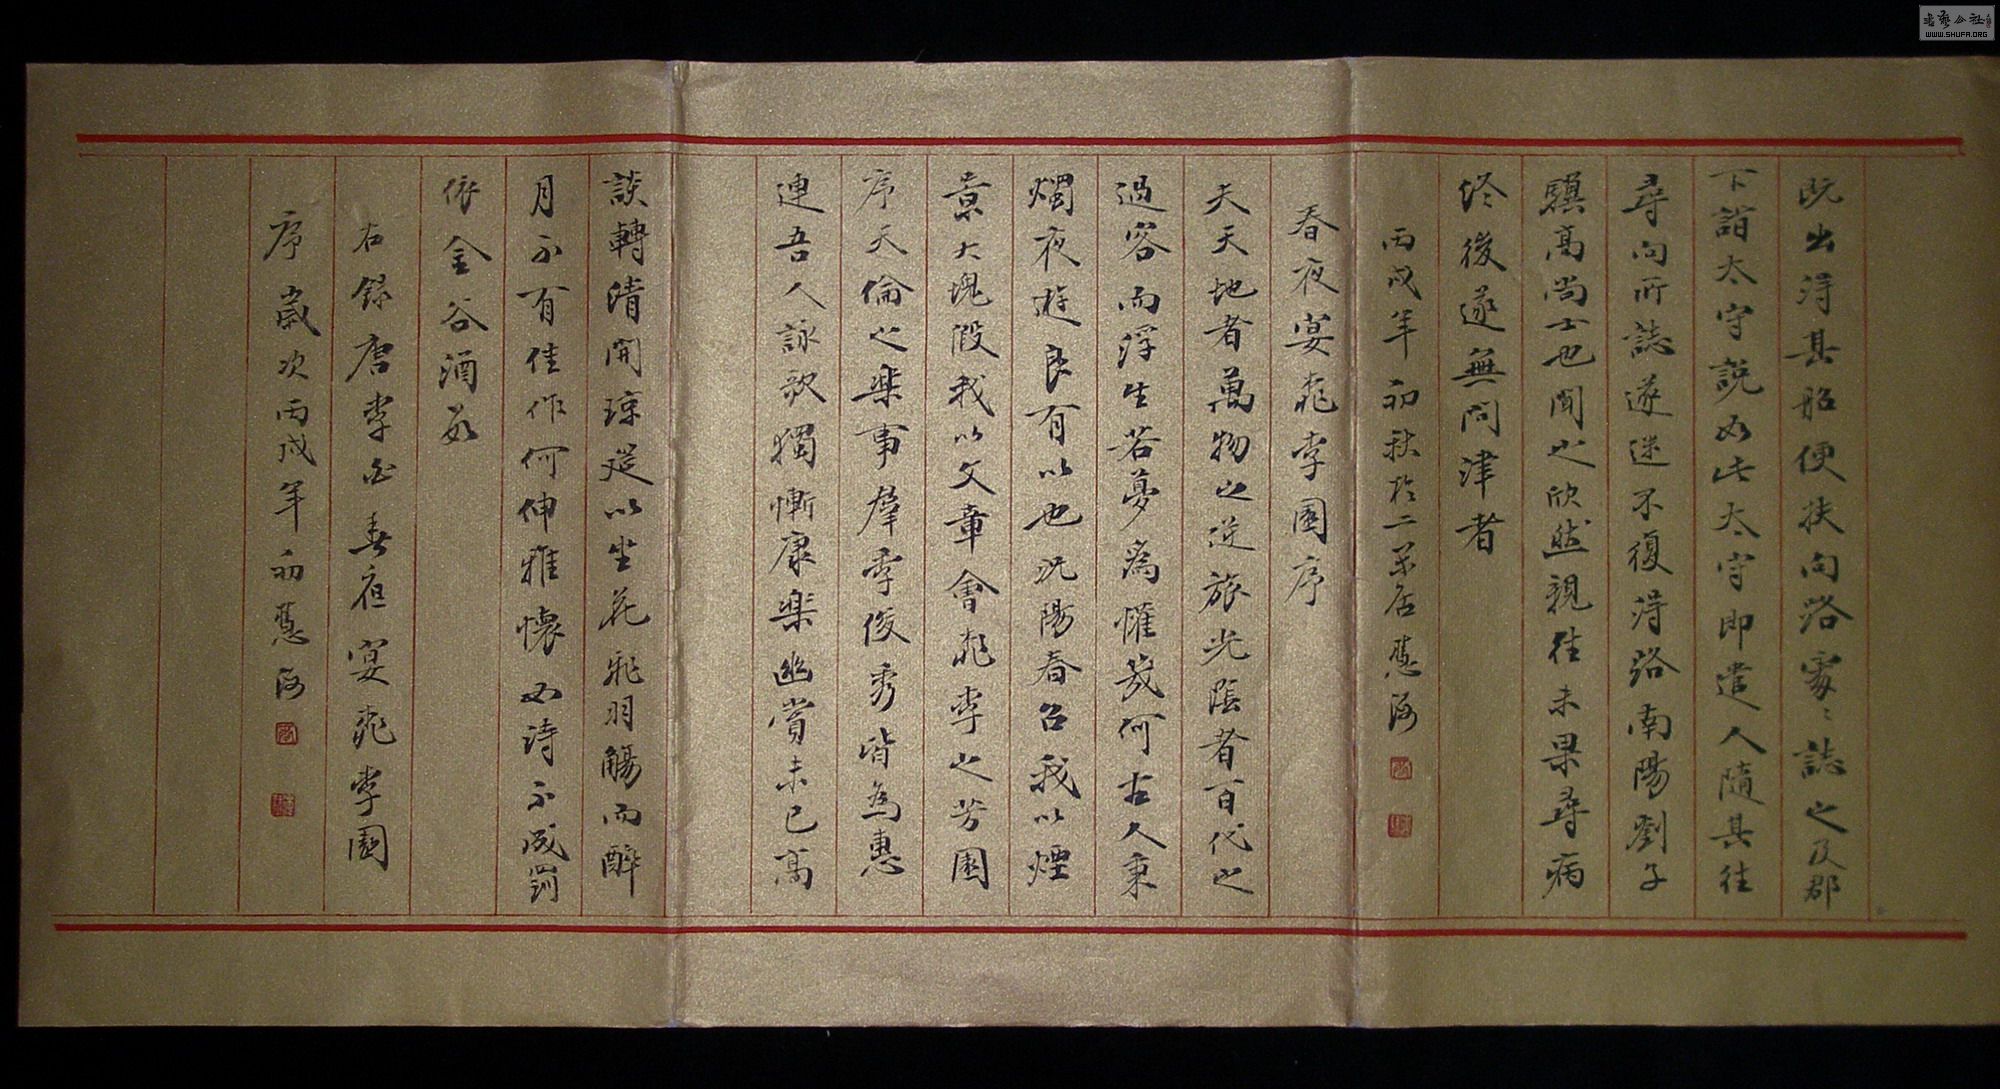 既出得其船便扶向路處〻誌之及郡
下詣太守說如此太守即遣人隨其往
尋向所誌遂迷不復得路南陽劉子
驥高尚士也聞之欣然親往未果尋病
終後遂無問津者
丙戌年初秋於二居
春夜宴桃李園序
夫天地者萬物之逆旅光陰者百代之
過客而浮生若夢為懽幾何古人秉
燭夜遊良有以也況陽春召我以煙
景大塊假我以文章會桃李之芳園
序天倫之樂事羣季俊秀皆為惠
連吾人詠歌獨慚康樂幽賞未已高
談轉清開瓊筵以坐花飛羽觴而醉
月不有佳作何伸雅懷如詩不成罰
依金谷酒數
右錄唐李白春夜宴桃李園
序歲次丙戌年初
書藝公社
WWW.SHUFA.ORG